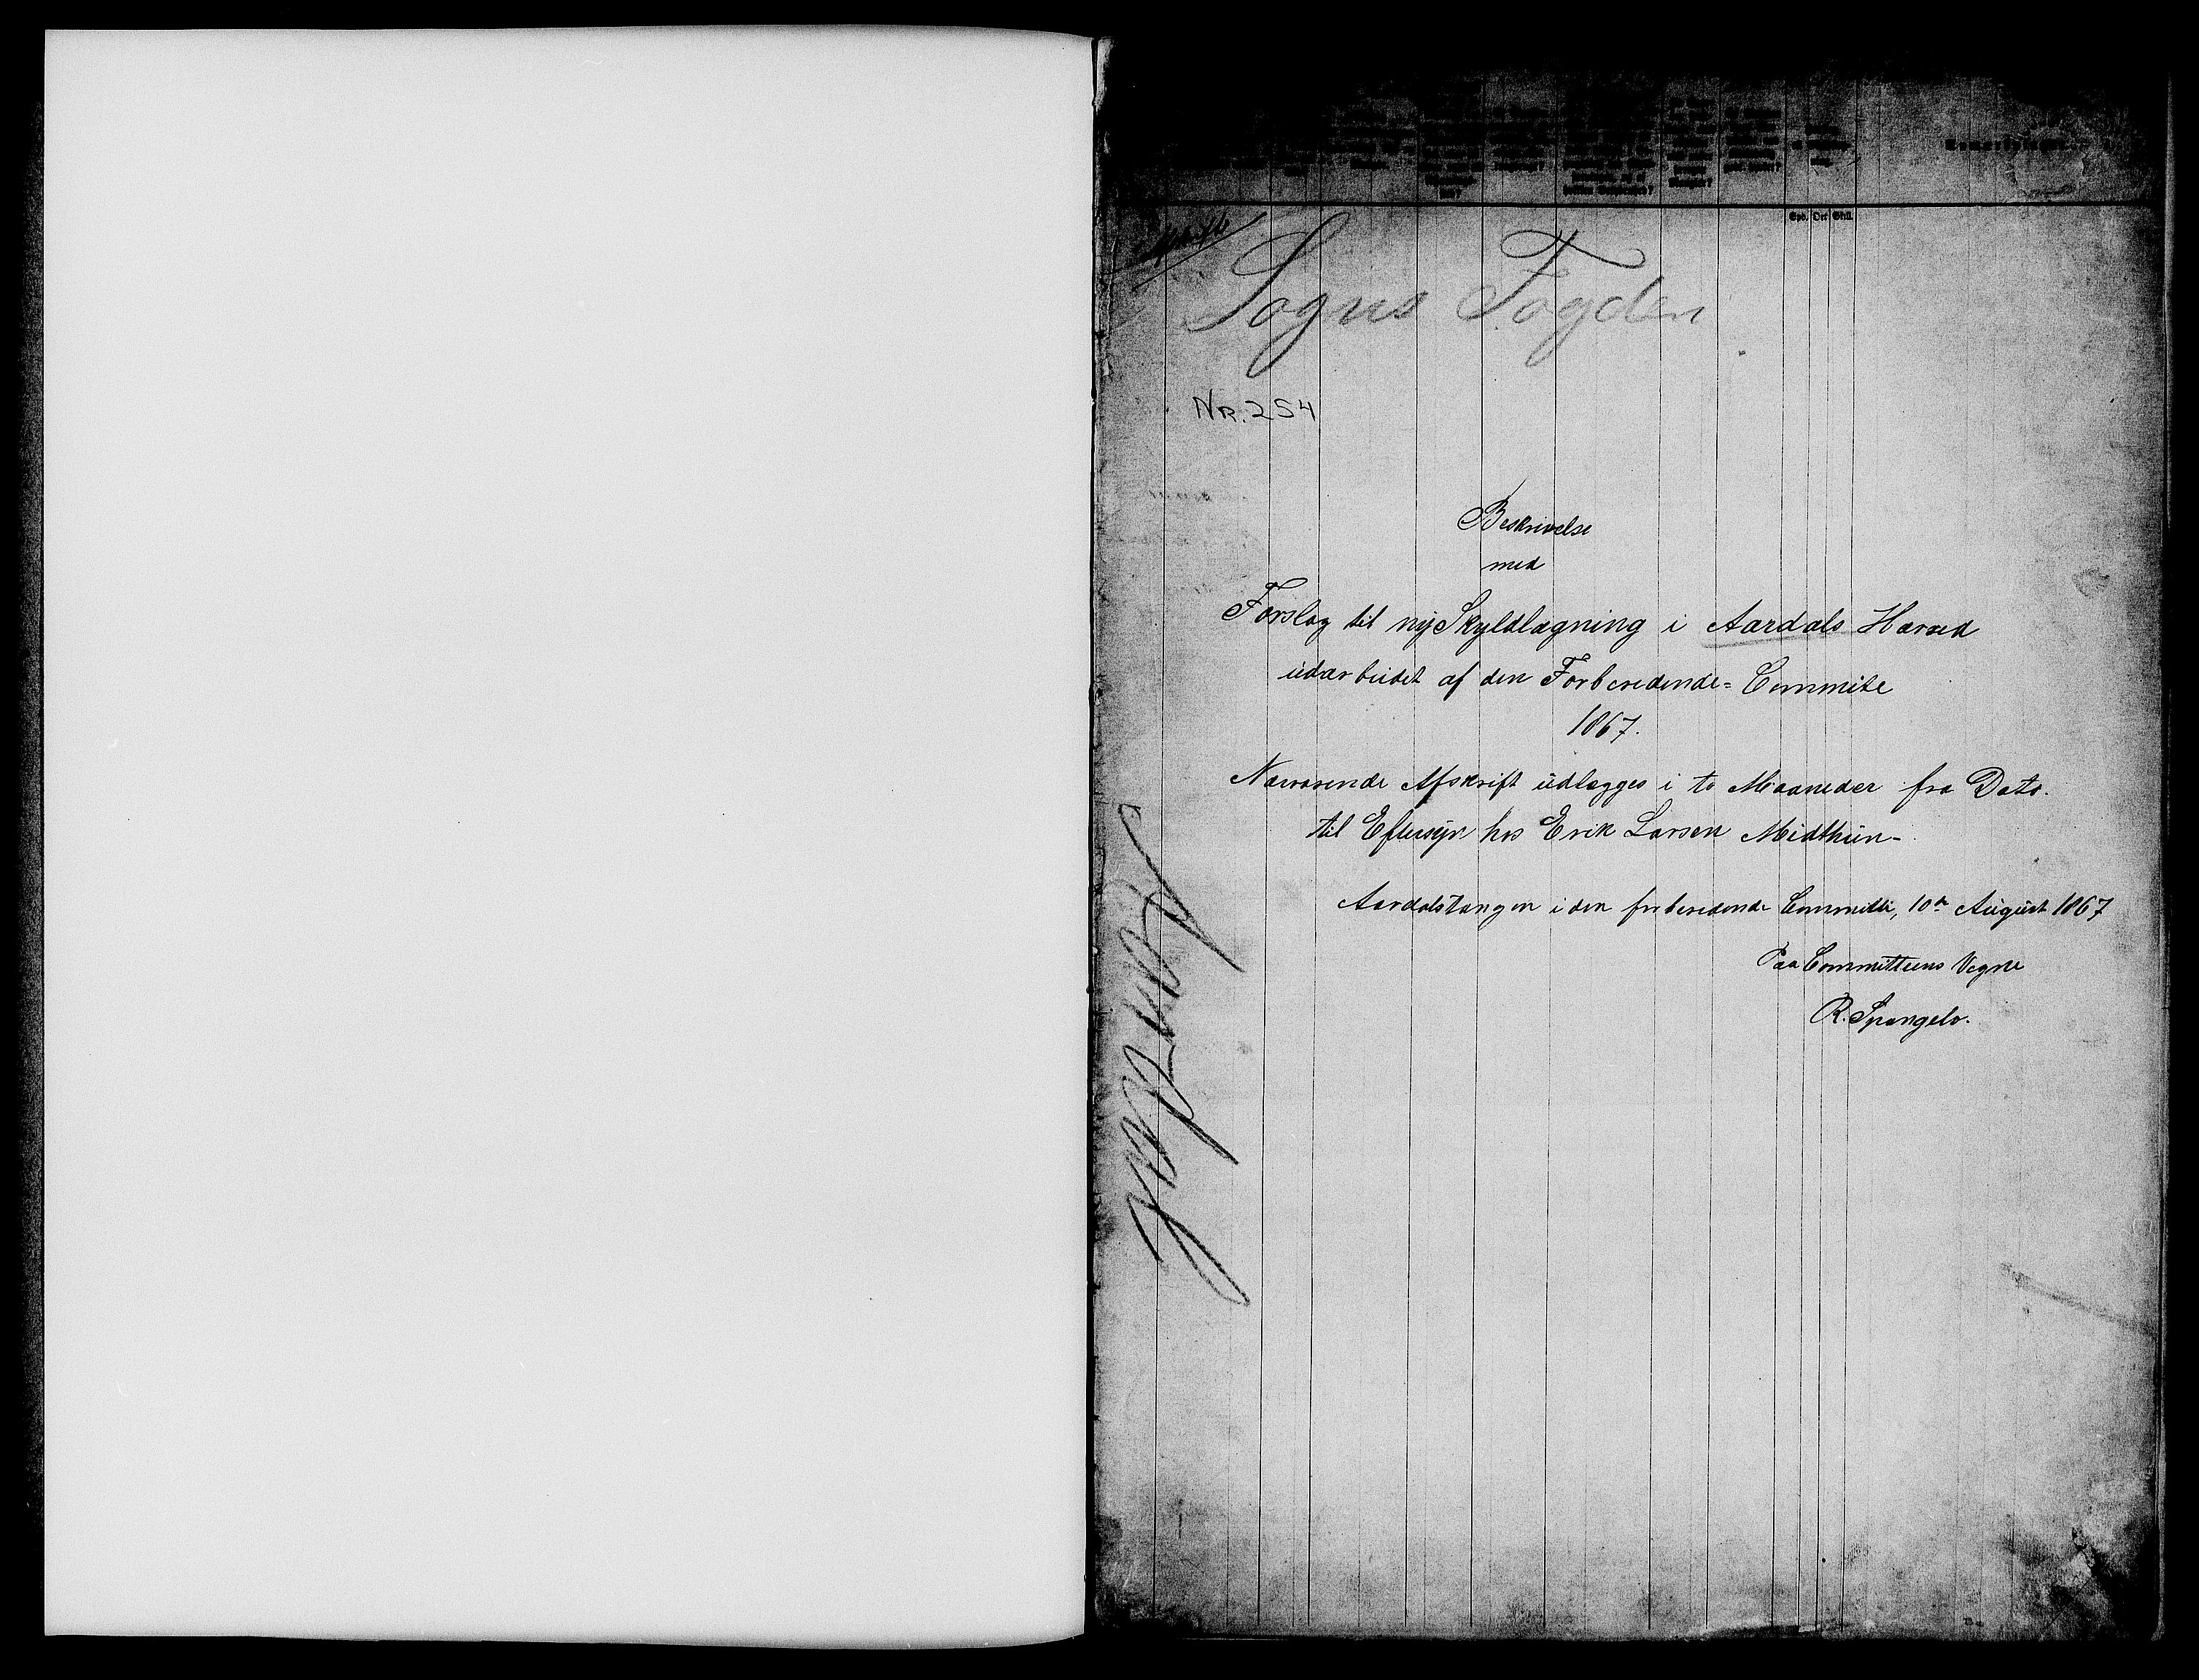 Anmerkninger.
Spd. Ort Skill.
Afskrift
Sogns Fogden
NR. 254
Beskrivelse
med
Forslag til ny Skyldlægning i Aardals Herred
udarbeidet af den Forberedende= Commite
1867.
Nærværende Afskrift udlægges i to Maaneder fra Dato.
til Eftersyn hos Erik Larsen Midthun-
Aardalstangen i den forberedende Committe, 10de August 1867
Paa Committeens Vegne
R. Spangelo.
Aardal